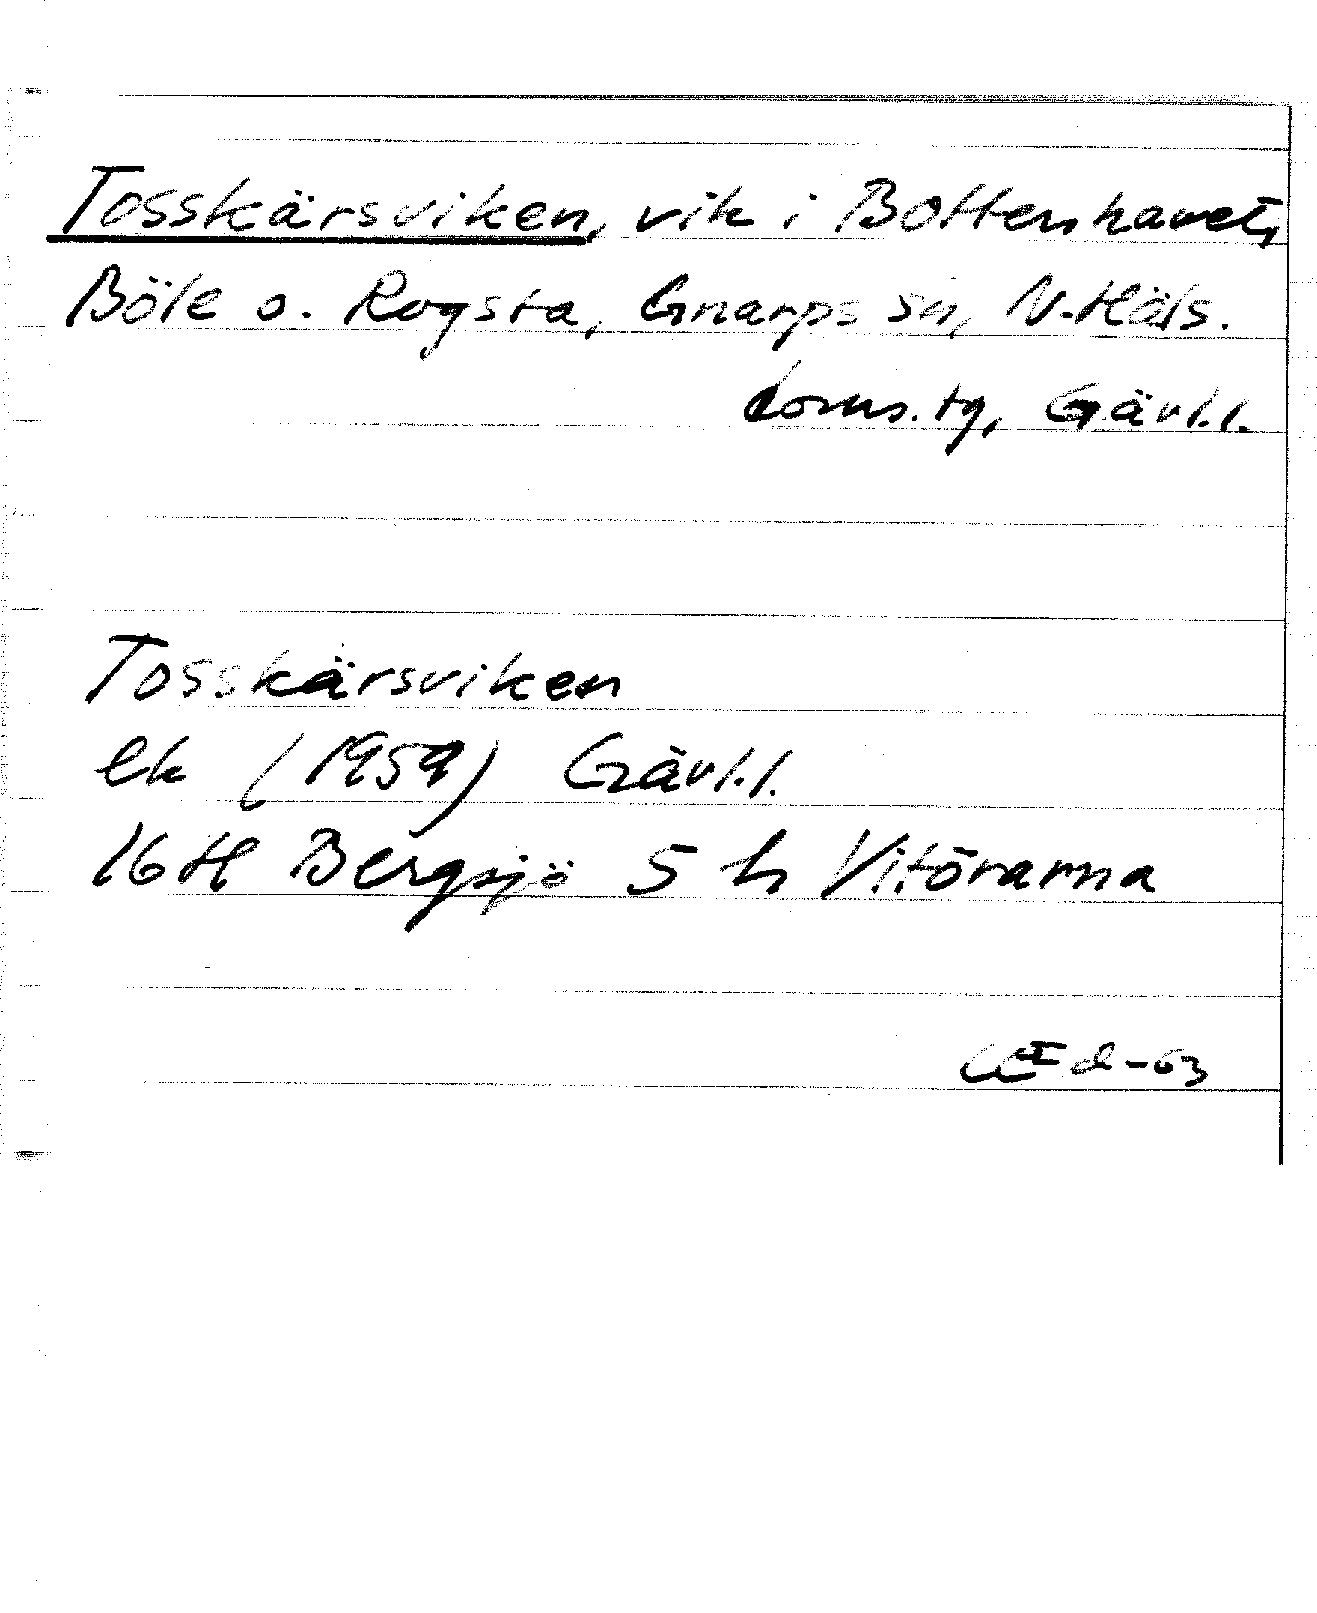 Tosskärsviken, vik i Bottenhavet,
Böle o. Rogsta, Gnarps sn, N. Häls.
doms.tg, Gävl.l.
Tosskärsviken
Ek (1959) Gävl.l.
16 H Bergsjö 5 h Vitörarna
d-63